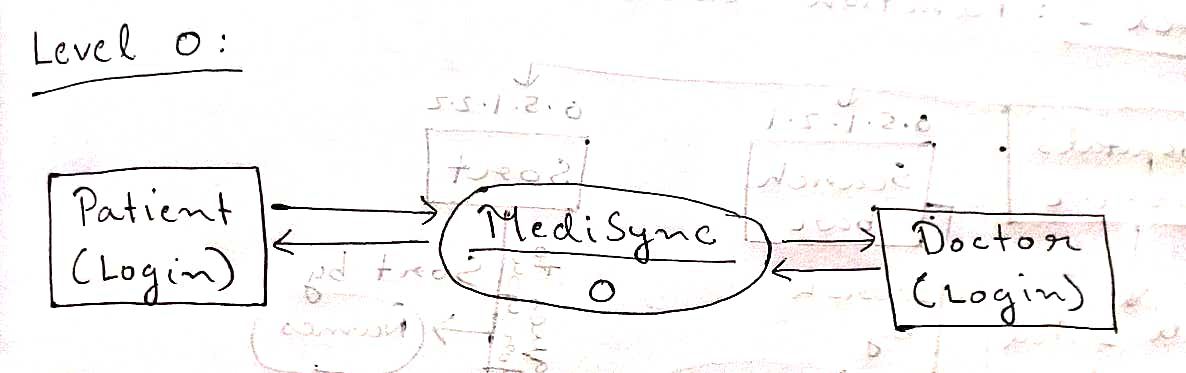 Level 0:
Patient
(Login)
MediSync
0
Doctor
(Login)